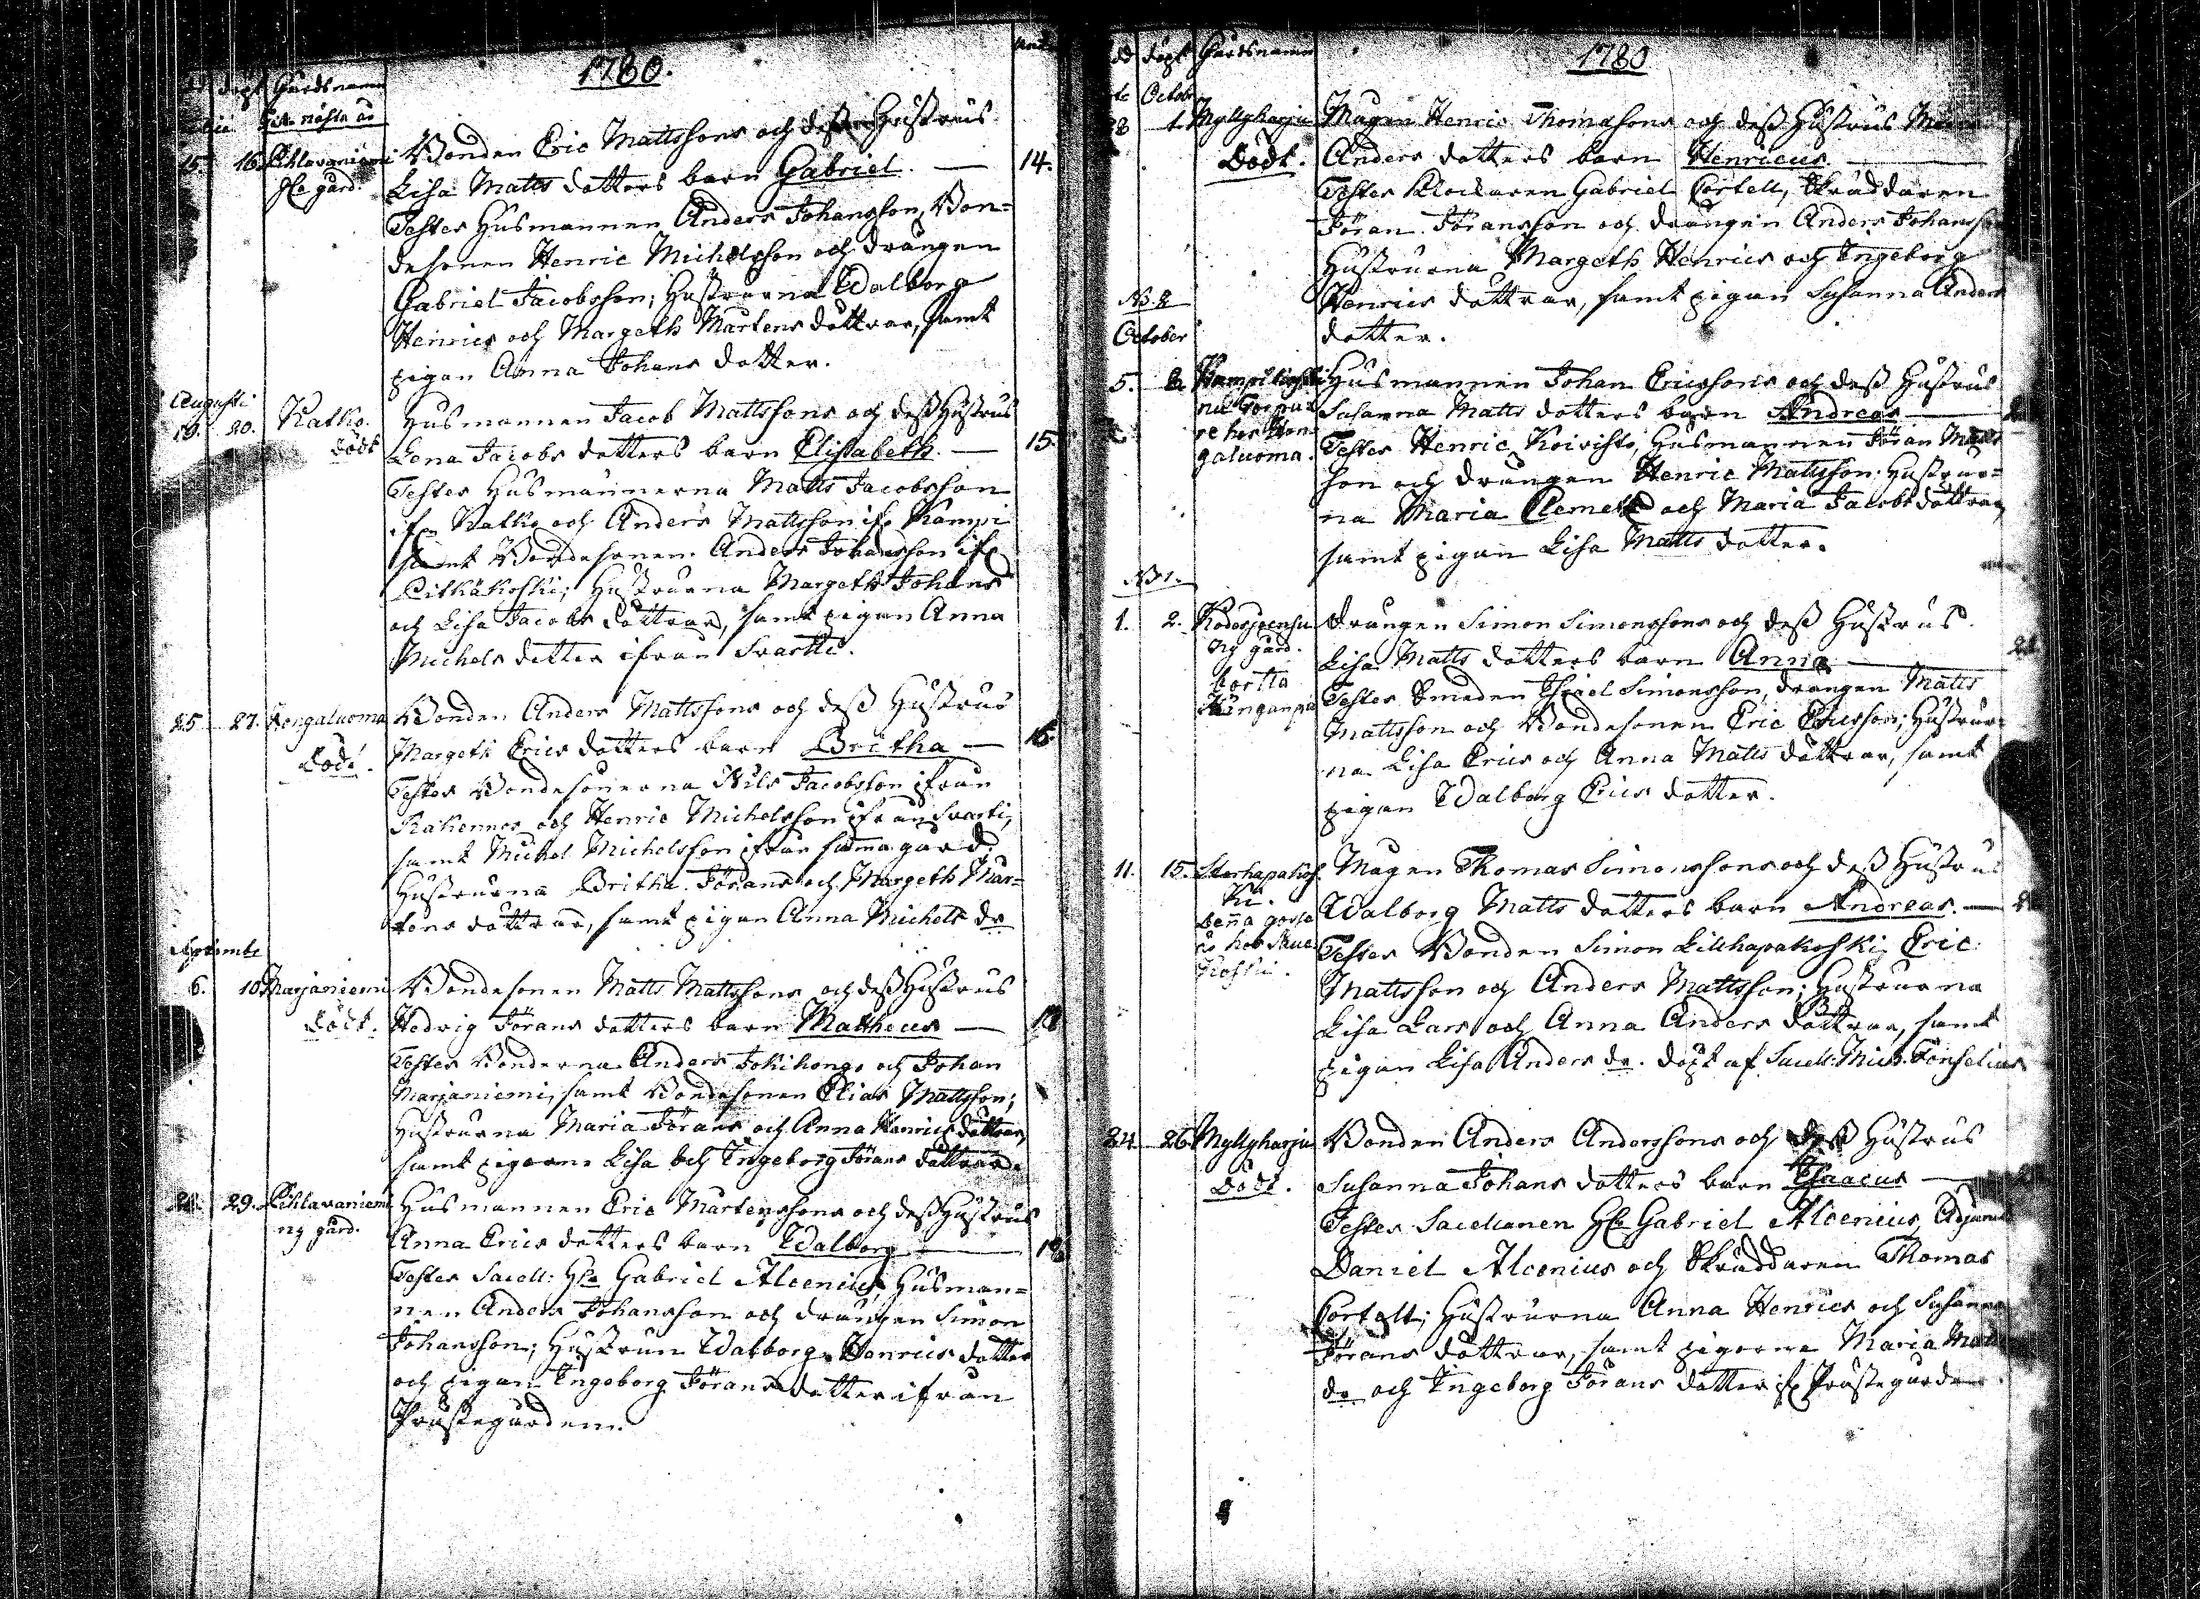 döpt Gårdsnamn
1780.
15. 16. Pihlavaniemi
gle gård.
Bonden Eric Mattssons och dess Hustrus
Lisa Matts dotters barn Gabriel. — 14.
Testes Husmannen Anders Johansson, Bon=
desonen Henric Michelsson och drängen
Gabriel Jacobsson; Hustrurna Walborg
Henrics och Margeth Mårtens döttrar, samt
pigan Anna Johans dotter.
Augusti
19. 20. Katko.
Död
Husmannen Jacob Mattssons och dess Hustrus
Lena Jacobs dotters barn Elisabeth. — 15.
Testes Husmännerna Matts Jacobsson
ifr. Katko och Anders Mattsson ifr. Kampi
samt Bondesonen Anders Johansson ifr.
Pitkäkoski; Hustrurna Margeth Johans
och Lisa Jacobs döttrar, samt pigan Anna
Michels dotter ifrån Svartti.
25 27. Kangaluoma
Död.
Bonden Anders Mattssons och dess Hustrus
Margeth Erics dotters barn Britha — 16.
Testes Bondesönerna Nils Jacobsson ifrån
och Henric Michelsson ifrån Svarti,
samt Michel Michelsson ifrån samma gård.
Hustrurna Britha Jörans och Margeth Mår=
tens döttrar, samt pigan Anna Michels dr
6. 10 Marjaniemi
Död.
Bondesonen Matts Mattssons och dess Hustrus
Hedvig Jörans dotters barn Mattheus —
Testes Bönderna Anders Jokihonga och Johan
Marjaniemi, samt Bondesonen Elias Mattsson;
Hustrurna Maria Jörans och Anna Henrics döttrar,
samt pigorna Lisa och Ingeborg Jörans döttrar.
29. Pihlavaniemi
ny gård.
Husmannen Eric Mårtenssons och dess Hustrus
Anna Erics dotters barn Walborg —
Testes Sacell: Hr Gabriel Alcenius, Husman=
nen Anders Johansson och drängen Simon
Johansson; Hustrun Walborg Henrics dotter
och pigan Ingeborg Jörans dotter ifrån
Prästegården.
döpt Gårdsnamn
1780
October
1. Myllyharju
Död.
Mågen Henric Thomasons och dess Hustrus
Anders dotters barn Henricus. —
Testes Klockaren Gabriel Cortell, Skräddaren
Jöran Jöransson och drängen Anders Johansson
Hustrurna Margeth Henrics och Ingeborg
Henrics döttrar, samt pigan Susanna Anders
dotter.
No. 2
October
5.
galuoma.
Husmannen Johan Ericssons och dess Hustrus
Susanna Matts dotters barn Andreas —
Testes Henric Koivisto, Husmannen Jöran Matts
son och drängen Henric Mattsson. Hustrur=
na Maria Clemets och Maria Jacobs döttrar,
samt pigan Lisa Matts dotter.
No 1.
1. 2.
ny gård.
Drängen Simon Simonssons och dess Hustrus
Lisa Matts dotters barn Anna —
Testes Smeden Israel Simonsson, drängen Matts
Mattsson och Bondesonen Eric Ericsson; Hustrur
na Lisa Erics och Anna Matts döttrar, samt
pigan Walborg Erics dotter.
11. 15. Storhapakos
ki.
Mågen Thomas Simonssons och dess Hustrus
Walborg Matts dotters barn Andreas. —
Testes Bonden Simon Lillhapakoski, Eric
Mattsson och Anders Mattsson; Hustrurna
Lisa Lars och Anna Anders döttrar, samt
pigan Lisa Anders dr. döpt af Sacell: Mich: Tönselius
24. 26 Myllyharju
Död.
Bonden Anders Anderssons och dess Hustrus
Susanna Johans dotters barn Isaacus —
Testes Sacellanen Hr Gabriel Alcenius,
Daniel Alcenius och Skräddaren Thomas
Cortell; Hustrurna Anna Henrics och Susanna
Jörans döttrar, samt pigorna Maria Matts
dr och Ingeborg Jörans dotter ifr. Prästegården